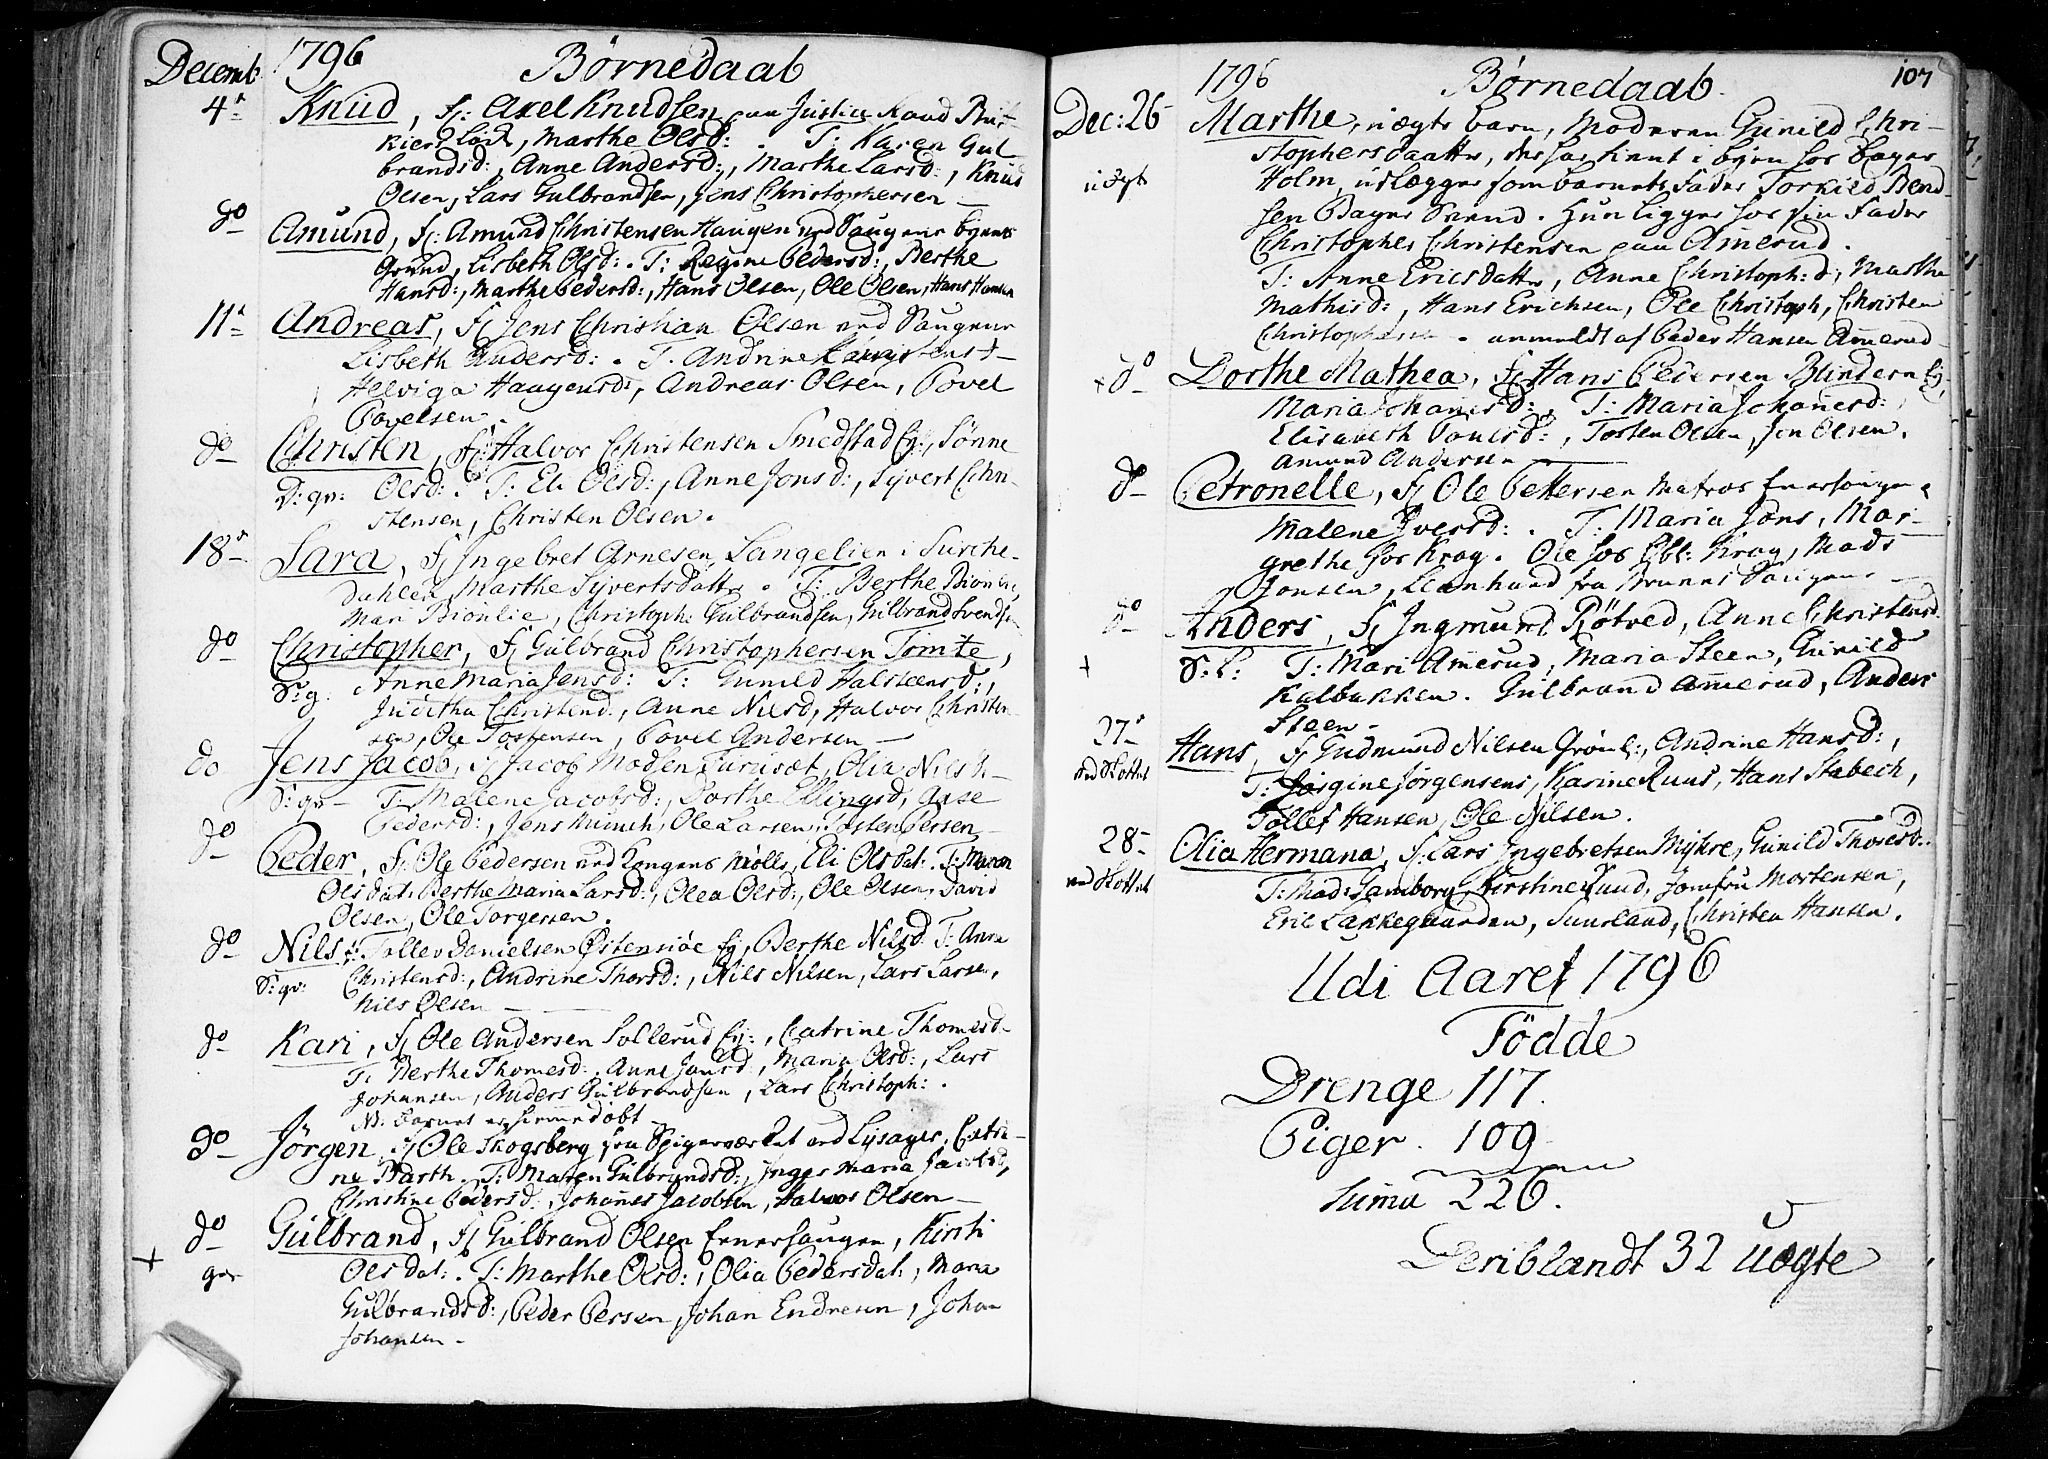 Decemb. 1796 Børnedaab
4de Knud, F: Axel Knudsen paa Justice Raad
Lökk, Marthe Olsd: . T: Karen Gul
brandsd:, Anne Andersd:, Marthe Larsd:, Knud
Olsen, Lars Gulbrandsen, Jens Christophersen
do Amund, F: Amund Christensen Haugen ved Saugene Byens
Grund, Lisbeth Olsd: . T: Regine Pedersd:, Berthe
Hansd:, Marthe Pedersd:, Hans Olsen, Ole Olsen, Hans Hansen
11te Andreas, F: Jens Christian Olsen ved Saugene
Lisbeth Andersd: . T: Andrine
Helviga Haagensd:, Andreas Olsen, Povel
Povelsen.
do Christen, F: Halvor Christensen Smedstad Ej:, Sønne
D: qv: Olsd: . T: Eli Olsd:, Anne Jonsd:, Syvert Chri-
stensen, Christen Olsen.
18de Sara, F: Ingebret Arnesen Langelien i Sørche-
dahlen Marthe Syvertsdatter . T: Berthe Bionlie,
Mari Bionlie, Christoph: Gulbrandsen, Gulbrand Svends
do Christopher, F: Gulbrand Christophersen Tomte,
S: q. Anne Maria Jensd: T: Gunild Halsteensd:,
Juditha Christend., Anne Nilsd, Halvor Christen
sen, Ole Tostensen, Povel Andersen
do Jens Jacob, F: Jacob Madsen Furuset, Olia Nilsd.
S: qv T: Malene Jacobsd:, Dorthe Ellingsd, Aase
Pedersd:, Jens Munch, Ole Larsen, Tosten Persen
do Peder, F: Ole Pedersen ved Kongens Mölle, Eli Olsdat. T: Maren
Olsdat: Berthe Maria Larsd:, Olea Olsd:, Ole Olsen, David
Olsen, Ole Torgersen.
do Nils F: Tollev Danielsen Østensiøe Ej, Berthe Nilsd. T: Anne
S: qv: Christensd:, Andrine Thorsd:, Nils Nilsen, Lars Larsen,
Nils Olsen
do Kari, F: Ole Andersen Sollerud Ej:, Catrine Thomesd
T: Berthe Thomesd:, Anne Jansd, Maria Olsd:, Lars
Johansen, Anders Gulbrandsen, Lars Christoph: .
NB: Barnet er hiemmedöbt
do Jörgen, F: Ole Skogsberg fra Spigerværket ved Lysager, Catri-
ne Barth. T: Maren Gulbrandsd:, Inger Maria Jacobsd,
Christine Pedersd:, Johannes Jacobsen, Halvor Olsen
do Gulbrand, F: Gulbrand Olsen Enersaugen, Kirsti
+ Olsdat: . T: Marthe Olsd:, Olia Pedersdat:, Maria
Gulbrandsd:, Peder Persen, Johan Endresen, Johan
Johansen
1796 Børnedaab. 107
Dec: 26 Marthe, uægte barn, Moderen Gunild Chri-
stophersdaatter, der har tient i byen hos Bager
uægte Holm, udlægger som barnets Fader Torkild Bend
sen Bager Svend. Hun ligger hos sin Fader
Christopher Christensen paa Amerud.
T: Anne Ericsdatter, Anne Christoph: d:, Marthe
Mathisd:, Hans Erichsen, Ole Christoph, Christen
Christophersen . anmeldt af Peder Hansen Amerud
+ do Dorthe Mathea, F: Hans Pedersen Blindern Ej.
Maria Johanisd:, T: Maria Johanesd:
Elisabeth Povelsd:, Tosten Olsen, Jon Olsen.
Amund Andersen
do Petronelle, F: Ole Pettersen Matros Enersaugen
Malene Iversd: . T: Maria Jons, Mar-
grethe hos Krag. Ole hos Obl: Krag, Mads
Jonsen, Leonhard fra Saugene
do Anders, F: Ingmund Rötved, Anne Christensd.
+ S: L: T: Mari Amerud, Maria Steen, Gunild
Kalbakken. Gulbrand Amerud, Anders
Steen
27de Hans, F: Gudmund Nilsen Grönl:, Andrine Hansd:,
ved Slottet T: Jörgine Jörgensens, Karine Ruus, Hans Stabech,
Tollef Hansen, Ole Nilsen.
28 Olia Hermana, F: Lars Ingebretsen Myhre, Gunild Thoresd:
ved Slottet T: Mad: Lamborg, Kirstine Lund, Jomfru Mortensen,
Eric Lakkegaarden, Suurland, Christen Hansen.
Udi Aaret 1796
Födde
Drenge 117.
Piger . 109
Suma 226.
Deriblandt 32 Uægte